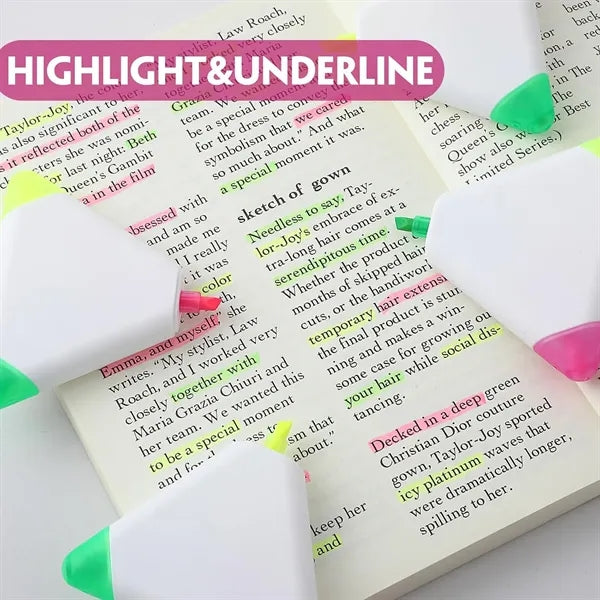 HIGHLIGHT&UNDERLINE
Law Roach,
very closely
Taylor-Joy,
is also significant to her.
s it reflected both of the
cters she was nomi-
for last night: Beth
Queen's Gambit
a in the film
obsessed with
and am so
made me
I really
it was
color
she
Emma, and myself,"
writes. "My stylist, Law
Roach, and I worked very
closely together with
Maria Grazia Chiuri and
her team. We wanted this
to be a special moment
and for
stylist, Law Roach,
worked very closely
Grazia
team. We wan
be a special moment
for the dress to convey the
symbolism that we cared
so much about." And what
a special moment it was.
sketch of gown
Needless to say, Tay-
lor-Joy's embrace of ex-
tra-long hair comes at a
serendipitous time.
Whether the product
months of skipped hair
cuts, or the handiwor
temporary hair extensi
the final product is stun
ning and makes a win-
some case for growing ou
your hair while social dis-
tancing.
that
about."
keep her
and
Decked in a deep green
Christian Dior couture
gown, Taylor-Joy sported
icy platinum waves that
were dramatically longer,
spilling to her.
been
back
a
red
in The
chess
soaring
Queen's G
show also w
Limited Series)
Best